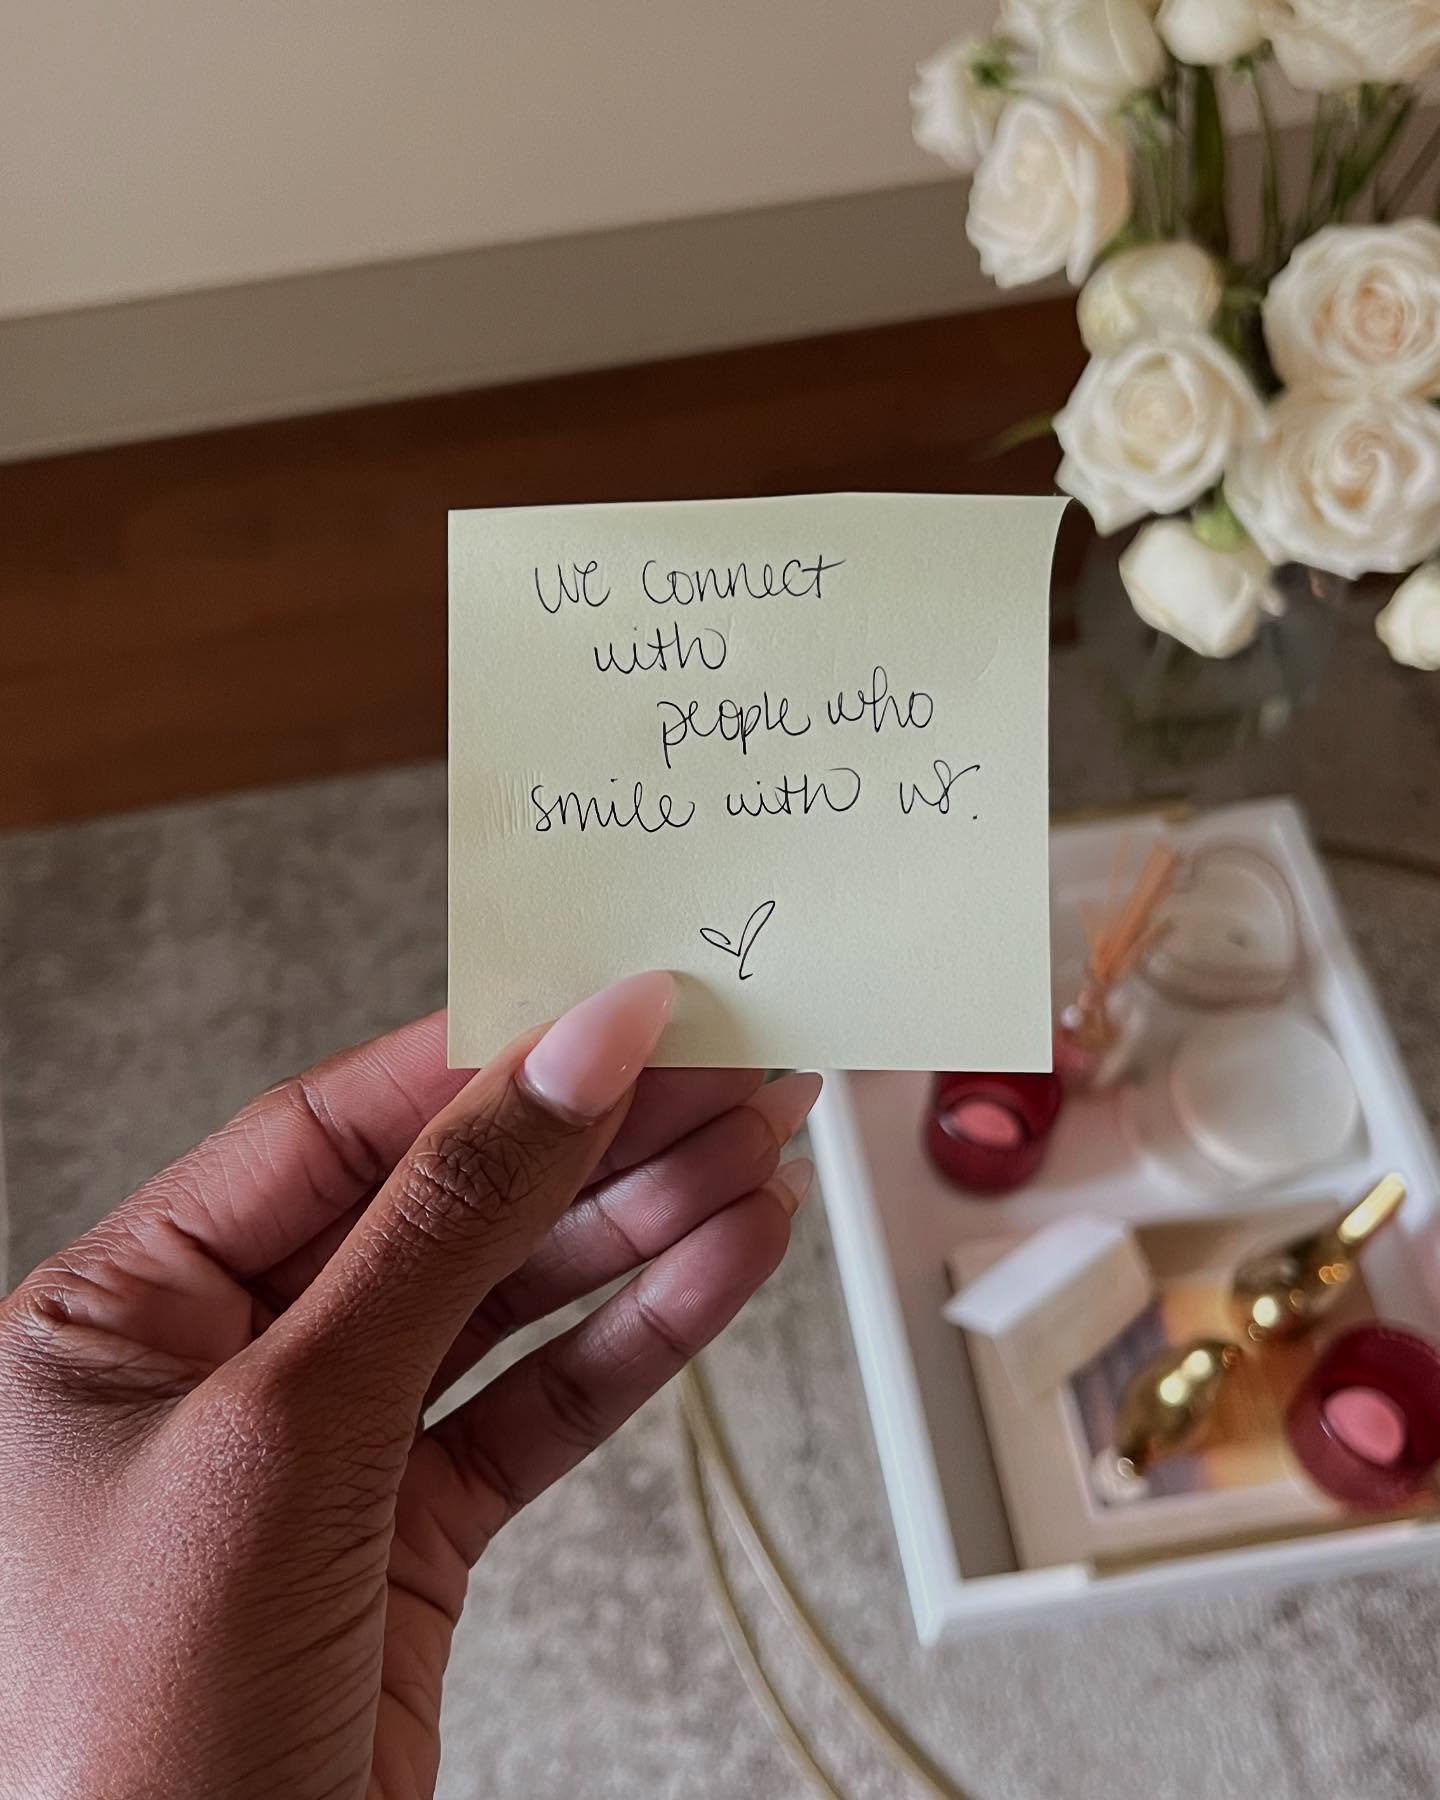 We connect
with
people who
smile with us.